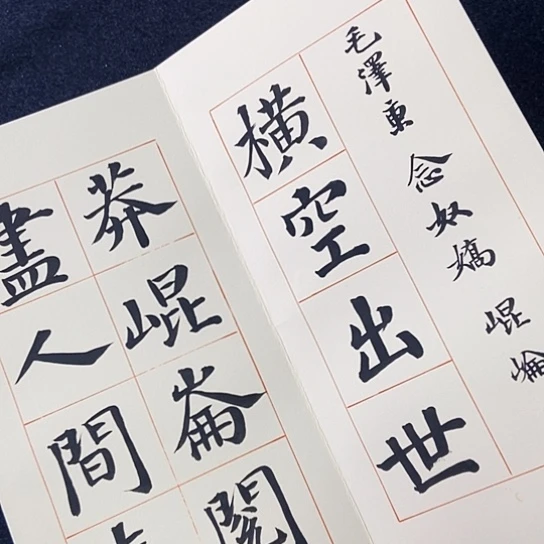 毛澤東 念奴嬌 崐崘
橫空出世
莽崐崙閱
盡人間